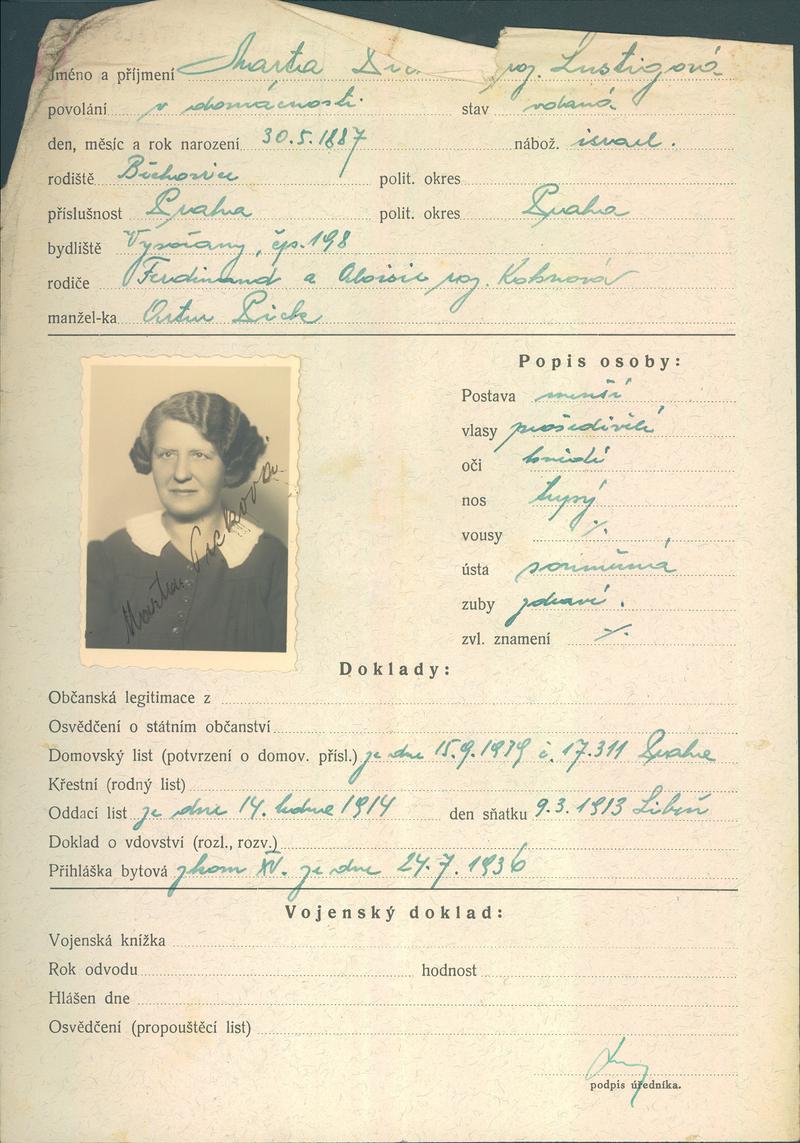 Jméno a příjmení Marta roz. Lustigová
povolání v domácnosti stav vdaná
den, měsíc a rok narození 30.5.1887 nábož. israel.
rodiště Běchovice polit. okres
příslušnost Praha polit. okres Praha
bydliště Vysočany, čp. 198
rodiče Ferdinand a Aloisie roz. Kohnová
manžel-ka Artur Pick
Popis osoby:
Postava menší
vlasy prošedivělé
oči hnědé
nos tupý
vousy ·/.
ústa souměrná
zuby zdravé.
zvl. znamení ·/.
Marta Picková
Doklady:
Občanská legitimace z
Osvědčení o státním občanství
Domovský list (potvrzení o domov. přísl.) ze dne 15.9. č. 17.311 Praha
Křestní (rodný list)
Oddací list ze dne 14. ledna 1914 den sňatku 9.3.1913 Libeň
Doklad o vdovství (rozl., rozv.)
Přihláška bytová zkom XV. ze dne 24.7.1936
Vojenský doklad:
Vojenská knížka
Rok odvodu hodnost
Hlášen dne
Osvědčení (propouštěcí list)
podpis úředníka.